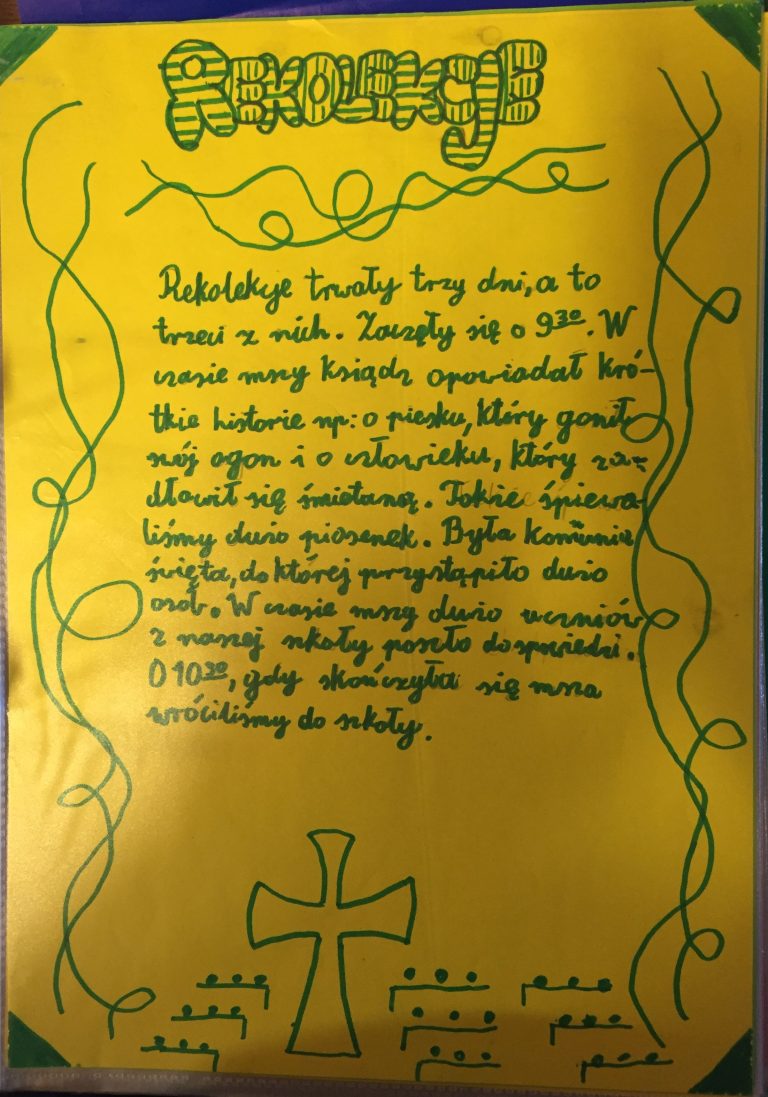 REKOLEKCJE
Rekolekcje trwały trzy dni, a to
trzeci z nich. Zaczęły się o 9³⁰. W
czasie mszy ksiądz opowiadał kró-
tkie historie np: o piesku, który gonił
swój ogon i o człowieku, który za-
dławił się śmietaną. Także śpiewa
liśmy dużo piosenek. Była komunia
święta, do której przystąpiło dużo
osób. W czasie mszy dużo uczniów
z naszej szkoły poszło do spowiedzi.
O 10³⁰, gdy skończyła się msza
wróciliśmy do szkoły.